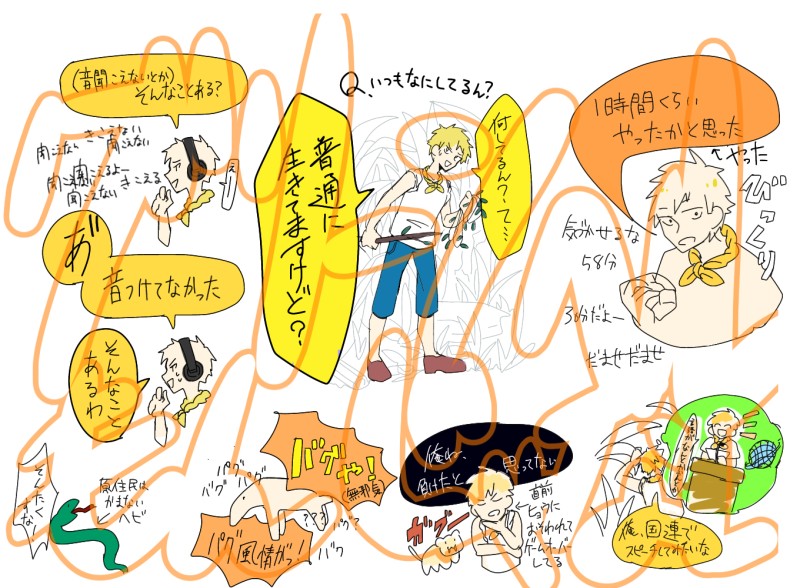 (音聞こえないとか)
そんなことある?
聞こえない きこえない
聞こえない
聞こえない 聞こえるよー
聞こえない きこえる
聞こえない
えー
あ゛
音つけてなかった
そんなこと
あるわ
Q、いつもなにしてるん?
何してるん?って…
普通に
生きてますけど?
1時間くらい
やったかと思った
↑やった
びっくり
気づかせるな
58分
30分だよー
だませだませ
そんたくすな
原住民は
かまない
ヘビ
バグや!
(無邪気)
バグバグ
バグ
???
バグ?
バグ
バグ風情がっ!
俺ね、
負けたと
思ってない
ガブー
直前
ヒョウに
おそわれて
ゲームオーバー
してる
俺、国連で
スピーチしてみたいな